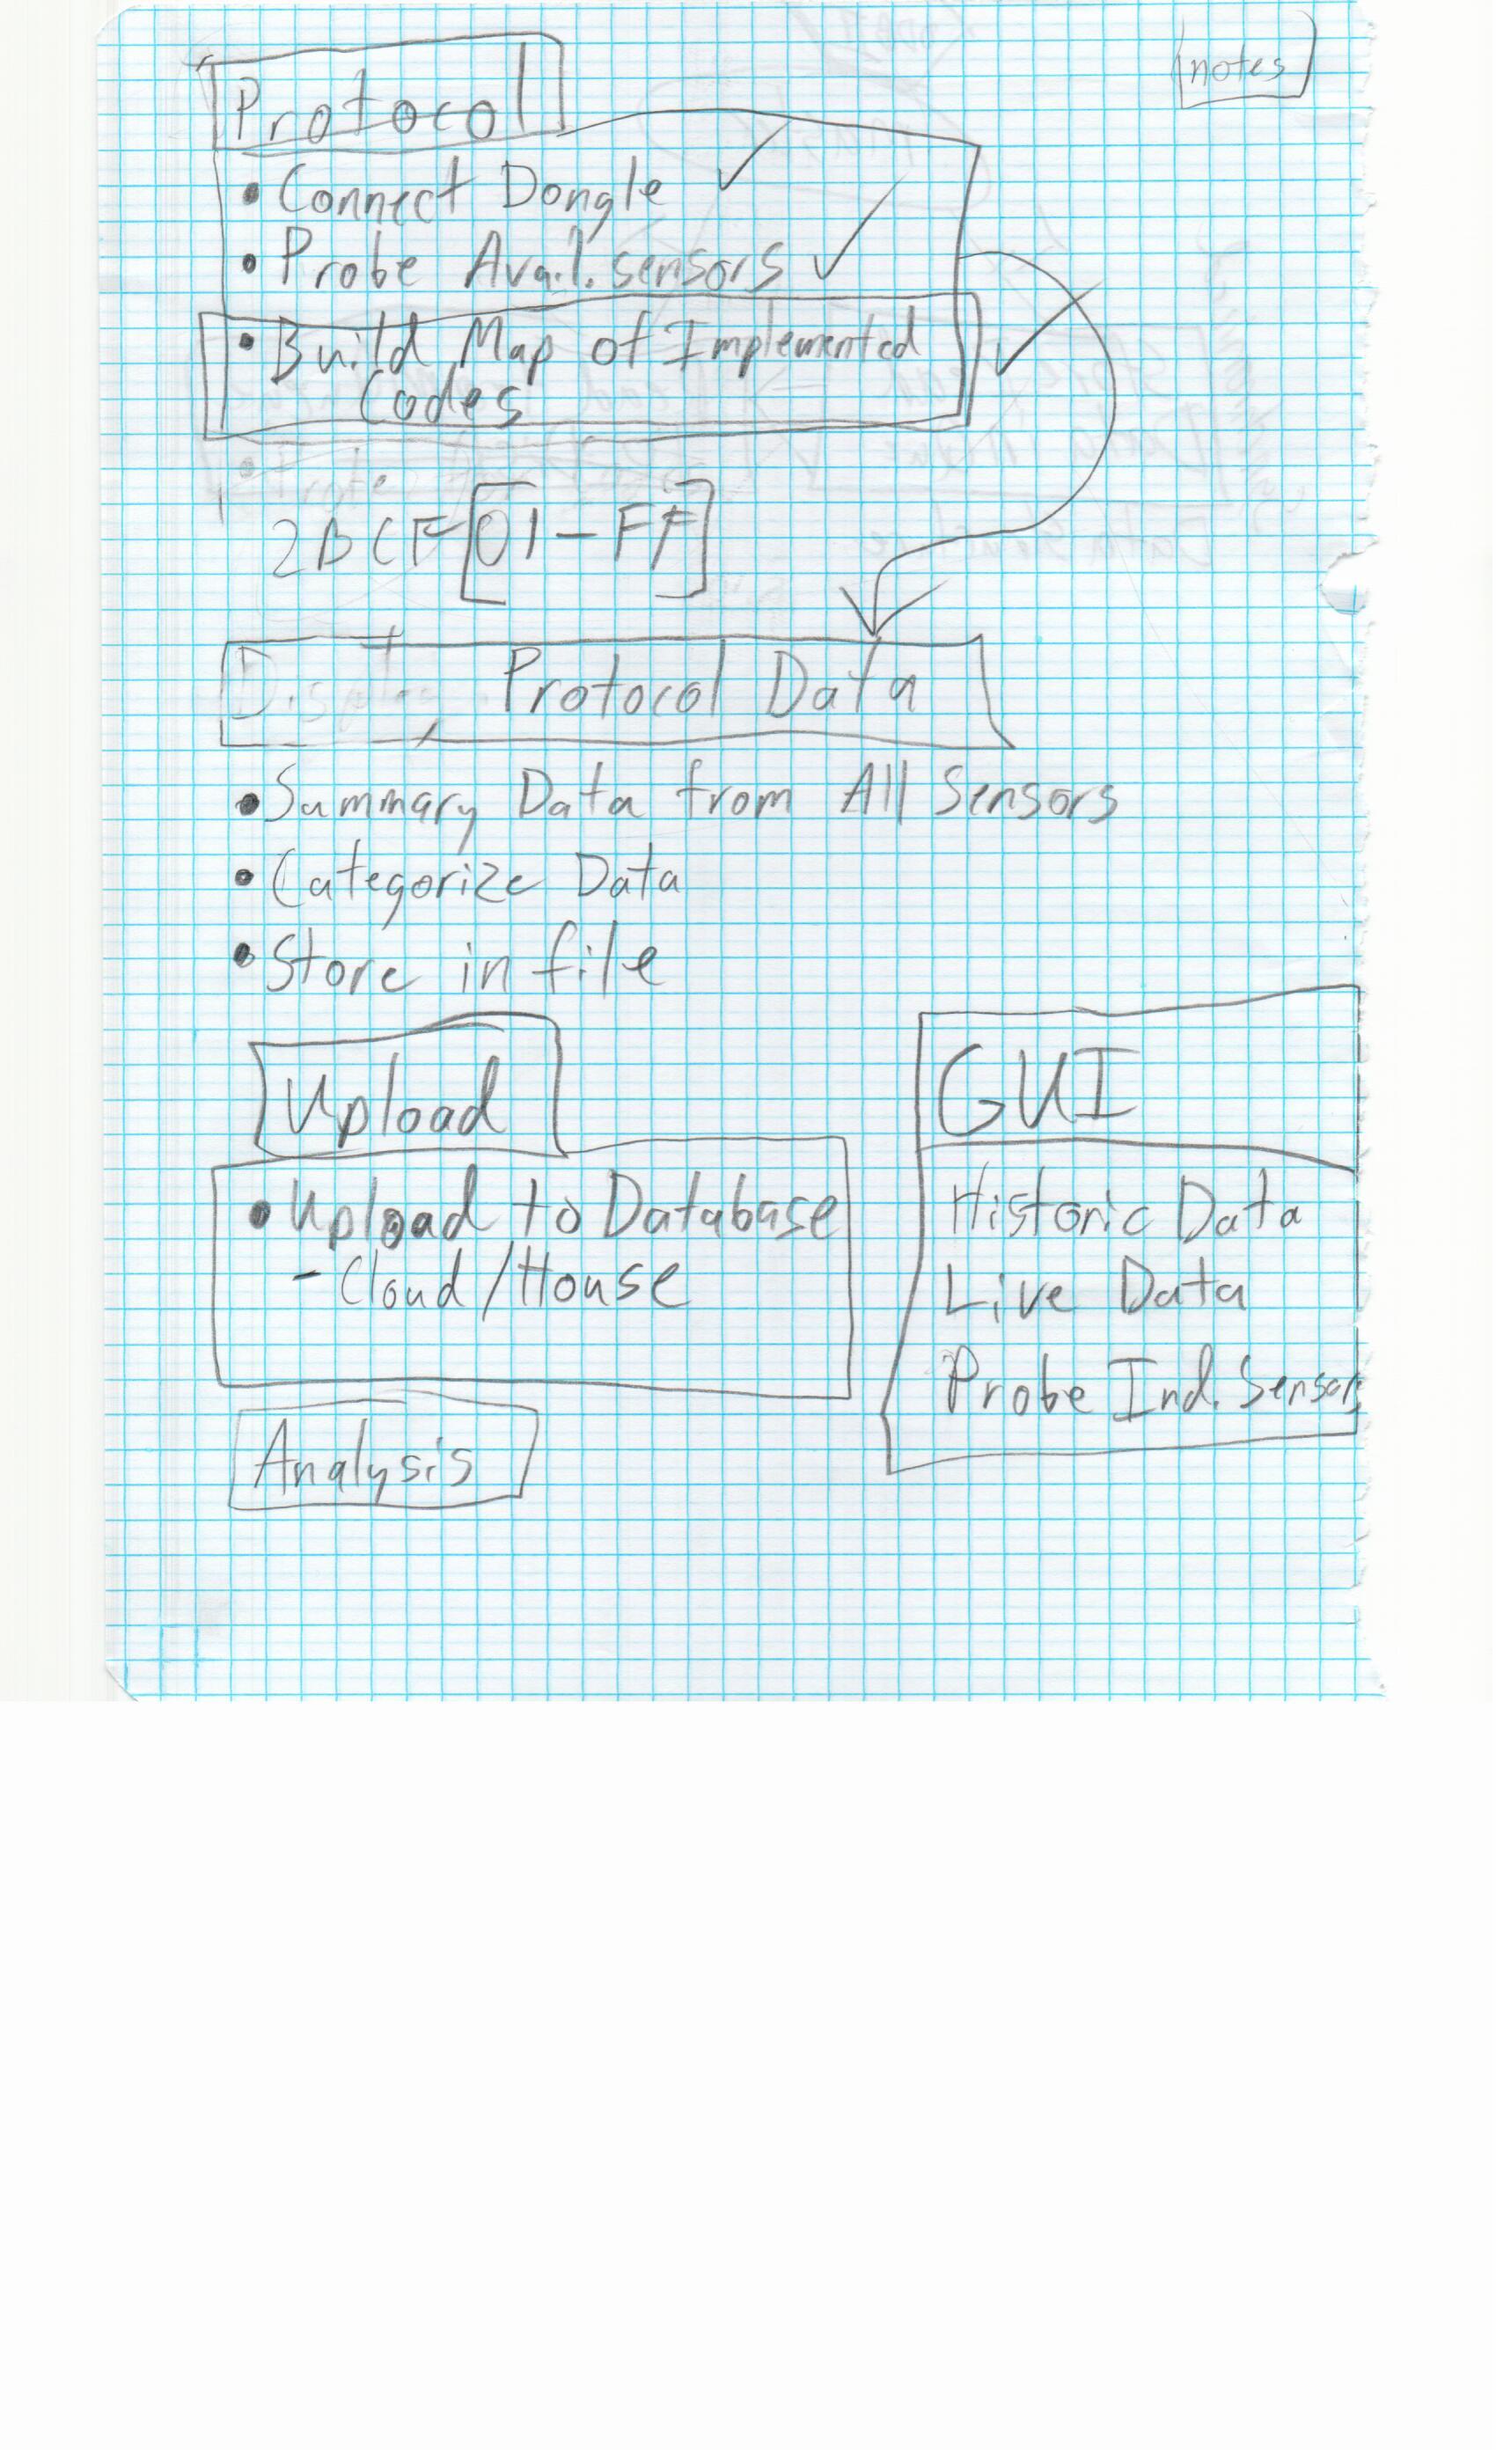 notes
Protocol
• Connect Dongle ✓
• Probe Avail. sensors ✓
• Build Map of Implemented ✓
Codes
2BCF[01-FF]
Display Protocol Data
• Summary Data from All Sensors
• Categorize Data
• Store in file
Upload
• Upload to Database
- Cloud/House
GUI
Historic Data
Live Data
Probe Ind. Sensors
Analysis